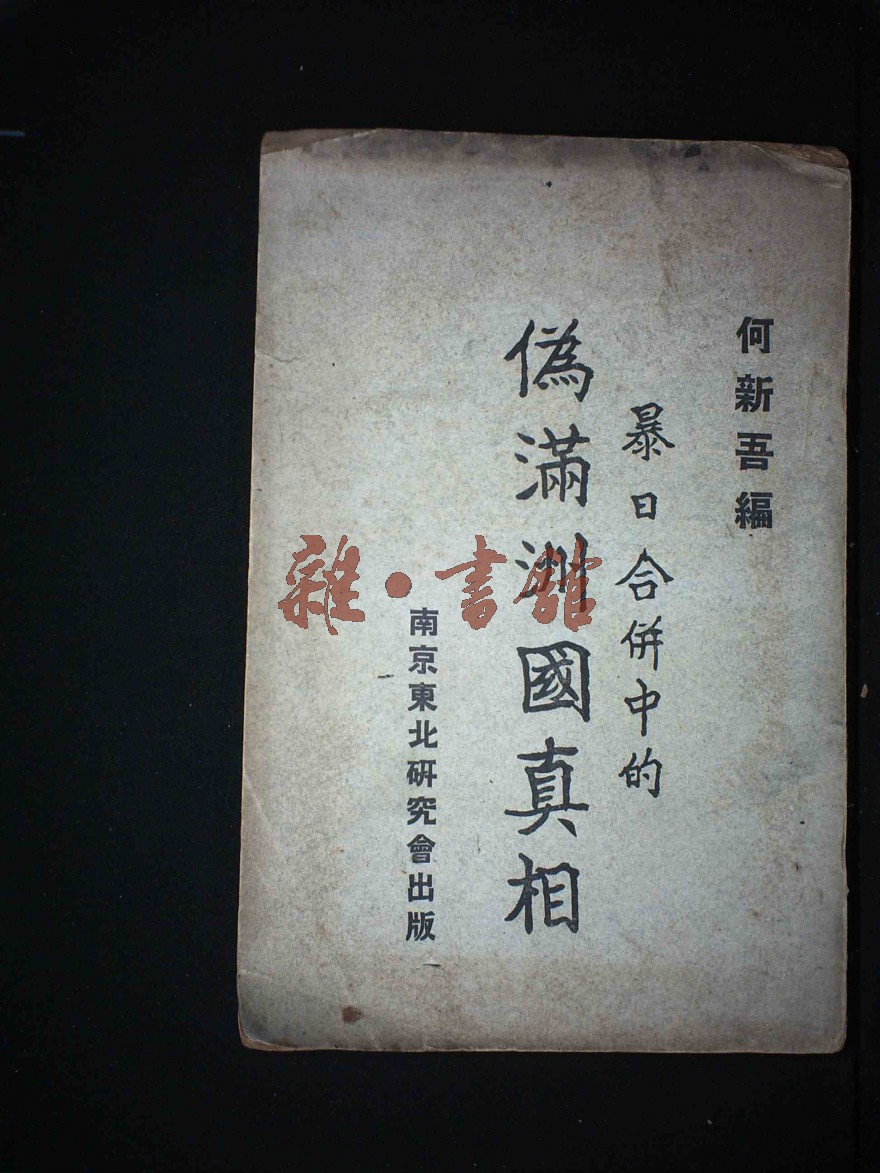 何新吾編
暴日合併中的
偽滿洲國真相
南京東北研究會出版
雜·書館